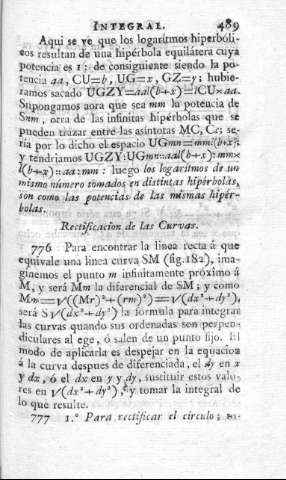 INTEGRAL. 489
Aqui se ve que los logaritmos hiperboli-
cos resultan de una hipérbola equilátera cuya
potencia es 1; de consiguiente siendo la po-
tencia aa, CU=b, UG=x, GZ=y; hubie-
ramos sacado UGZY=aal(b+x)=lCU×aa.
Supongamos aora que sea mm la potencia de
Snm, otra de las infinitas hipérbolas que se
pueden trazar entre las asintotas MC, Cc; se-
ria por lo dicho el espacio UGmn=mml(b+x);
y tendriamos UGZY:UGmn::aal(b+x):mm×
l(b+x)::aa:mm: luego los logaritmos de un
mismo número tomados en distintas hipérbolas,
son como las potencias de las mismas hipér-
bolas.
Rectificacion de las Curvas.
776 Para encontrar la linea recta á que
equivale una linea curva SM (fig.182), ima-
ginemos el punto m infinitamente próximo á
M, y será Mm la diferencial de SM; y como
Mm=√((Mr)²+(rm)²)=√(dx²+dy²),
será S√(dx²+dy²) la fórmula para integrar
las curvas quando sus ordenadas son perpen-
diculares al ege, ó salen de un punto fijo. El
modo de aplicarla es despejar en la equacion
á la curva despues de diferenciada, el dy en x
y dx, ó el dx en y y dy, sustituir estos valo-
res en √(dx²+dy²), y tomar la integral de
lo que resulte.
777 1.º Para rectificar el circulo;